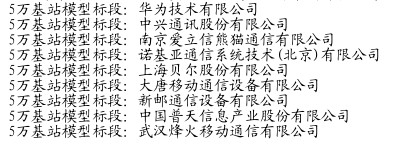 5万基站模型标段：华为技术有限公司
5万基站模型标段：中兴通讯股份有限公司
5万基站模型标段：南京爱立信熊猫通信有限公司
5万基站模型标段：诺基亚通信系统技术(北京)有限公司
5万基站模型标段：上海贝尔股份有限公司
5万基站模型标段：大唐移动通信设备有限公司
5万基站模型标段：新邮通信设备有限公司
5万基站模型标段：中国普天信息产业股份有限公司
5万基站模型标段：武汉烽火移动通信有限公司